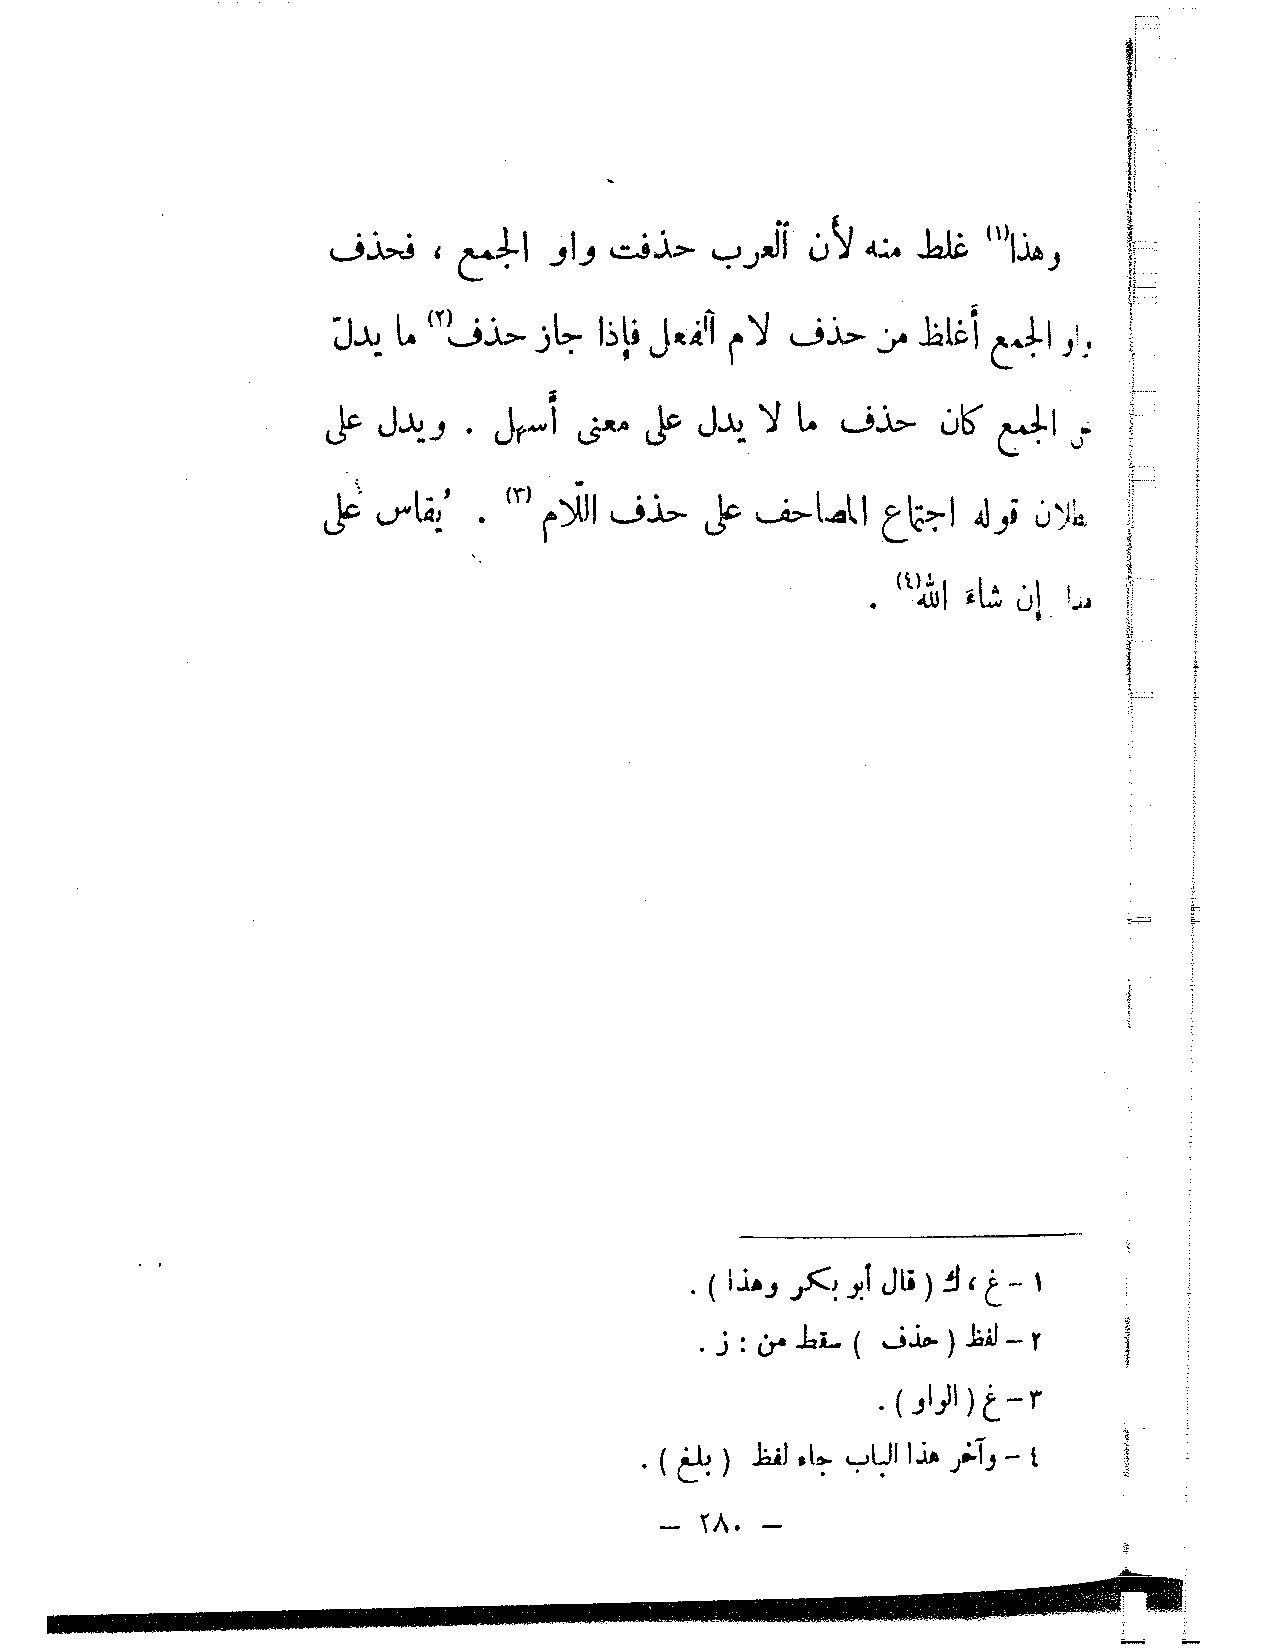 وهذا(١) غلط منه لأن العرب حذفت واو الجمع ، فحذف
واو الجمع أغلظ من حذف لام الفعل فإذا جاز حذف(٢) ما يدلّ
الجمع كان حذف ما لا يدل على معنى أسهل . ويدل على
قوله اجتماع المصاحف على حذف اللّام (٣) . يُقاس على
إن شاءَ الله(٤) .
١ – غ ، ك ( قال أبو بكر وهذا ) .
٢ – لفظ ( حذف ) سقط من : ز .
٣ – غ ( الواو ) .
٤ – وآخر هذا الباب جاء لفظ ( بلغ ) .
– ٢٨٠ –